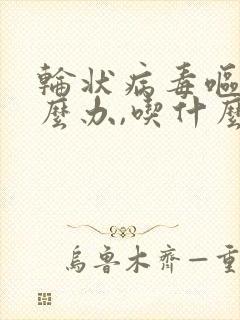 輪状病毒嘔
麼办,喫什麼
烏魯木齊—重